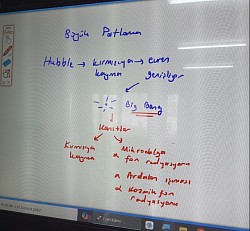 Büyük Patlama
Hubble → kırmızıya → evren
kayma genişliyor
Big Bang
Kanıtlar
Kırmızıya
kayma
Mikrodalga
fon radyasyonu
Ardalan ışıması
Kozmik fon
radyasyonu